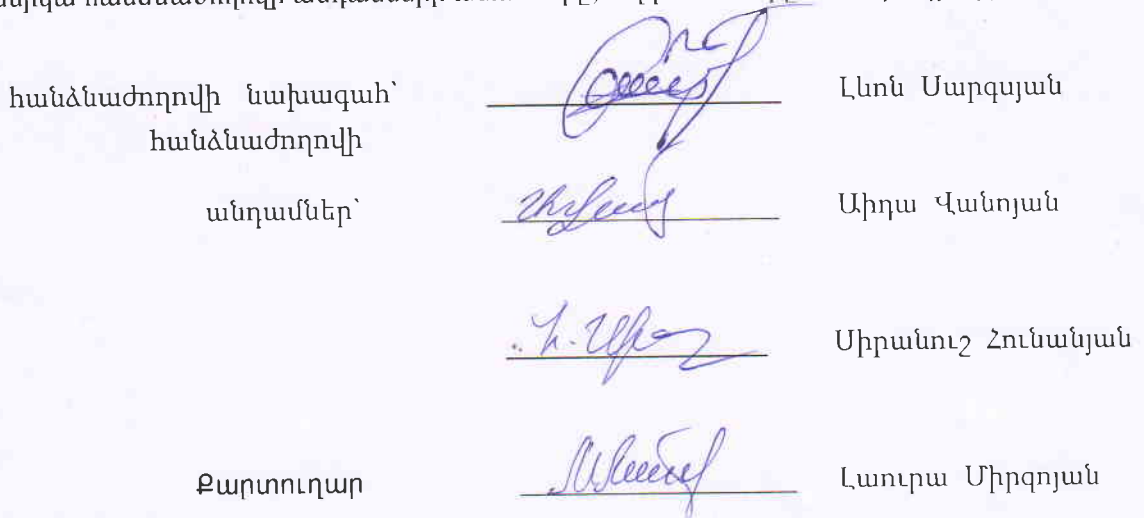 հանձնաժողովի նախագահ՝ Լևոն Սարգսյան
հանձնաժողովի
անդամներ՝ Աիդա Վանոյան
Սիրանուշ Հունանյան
Քարտուղար Լաուրա Միրզոյան